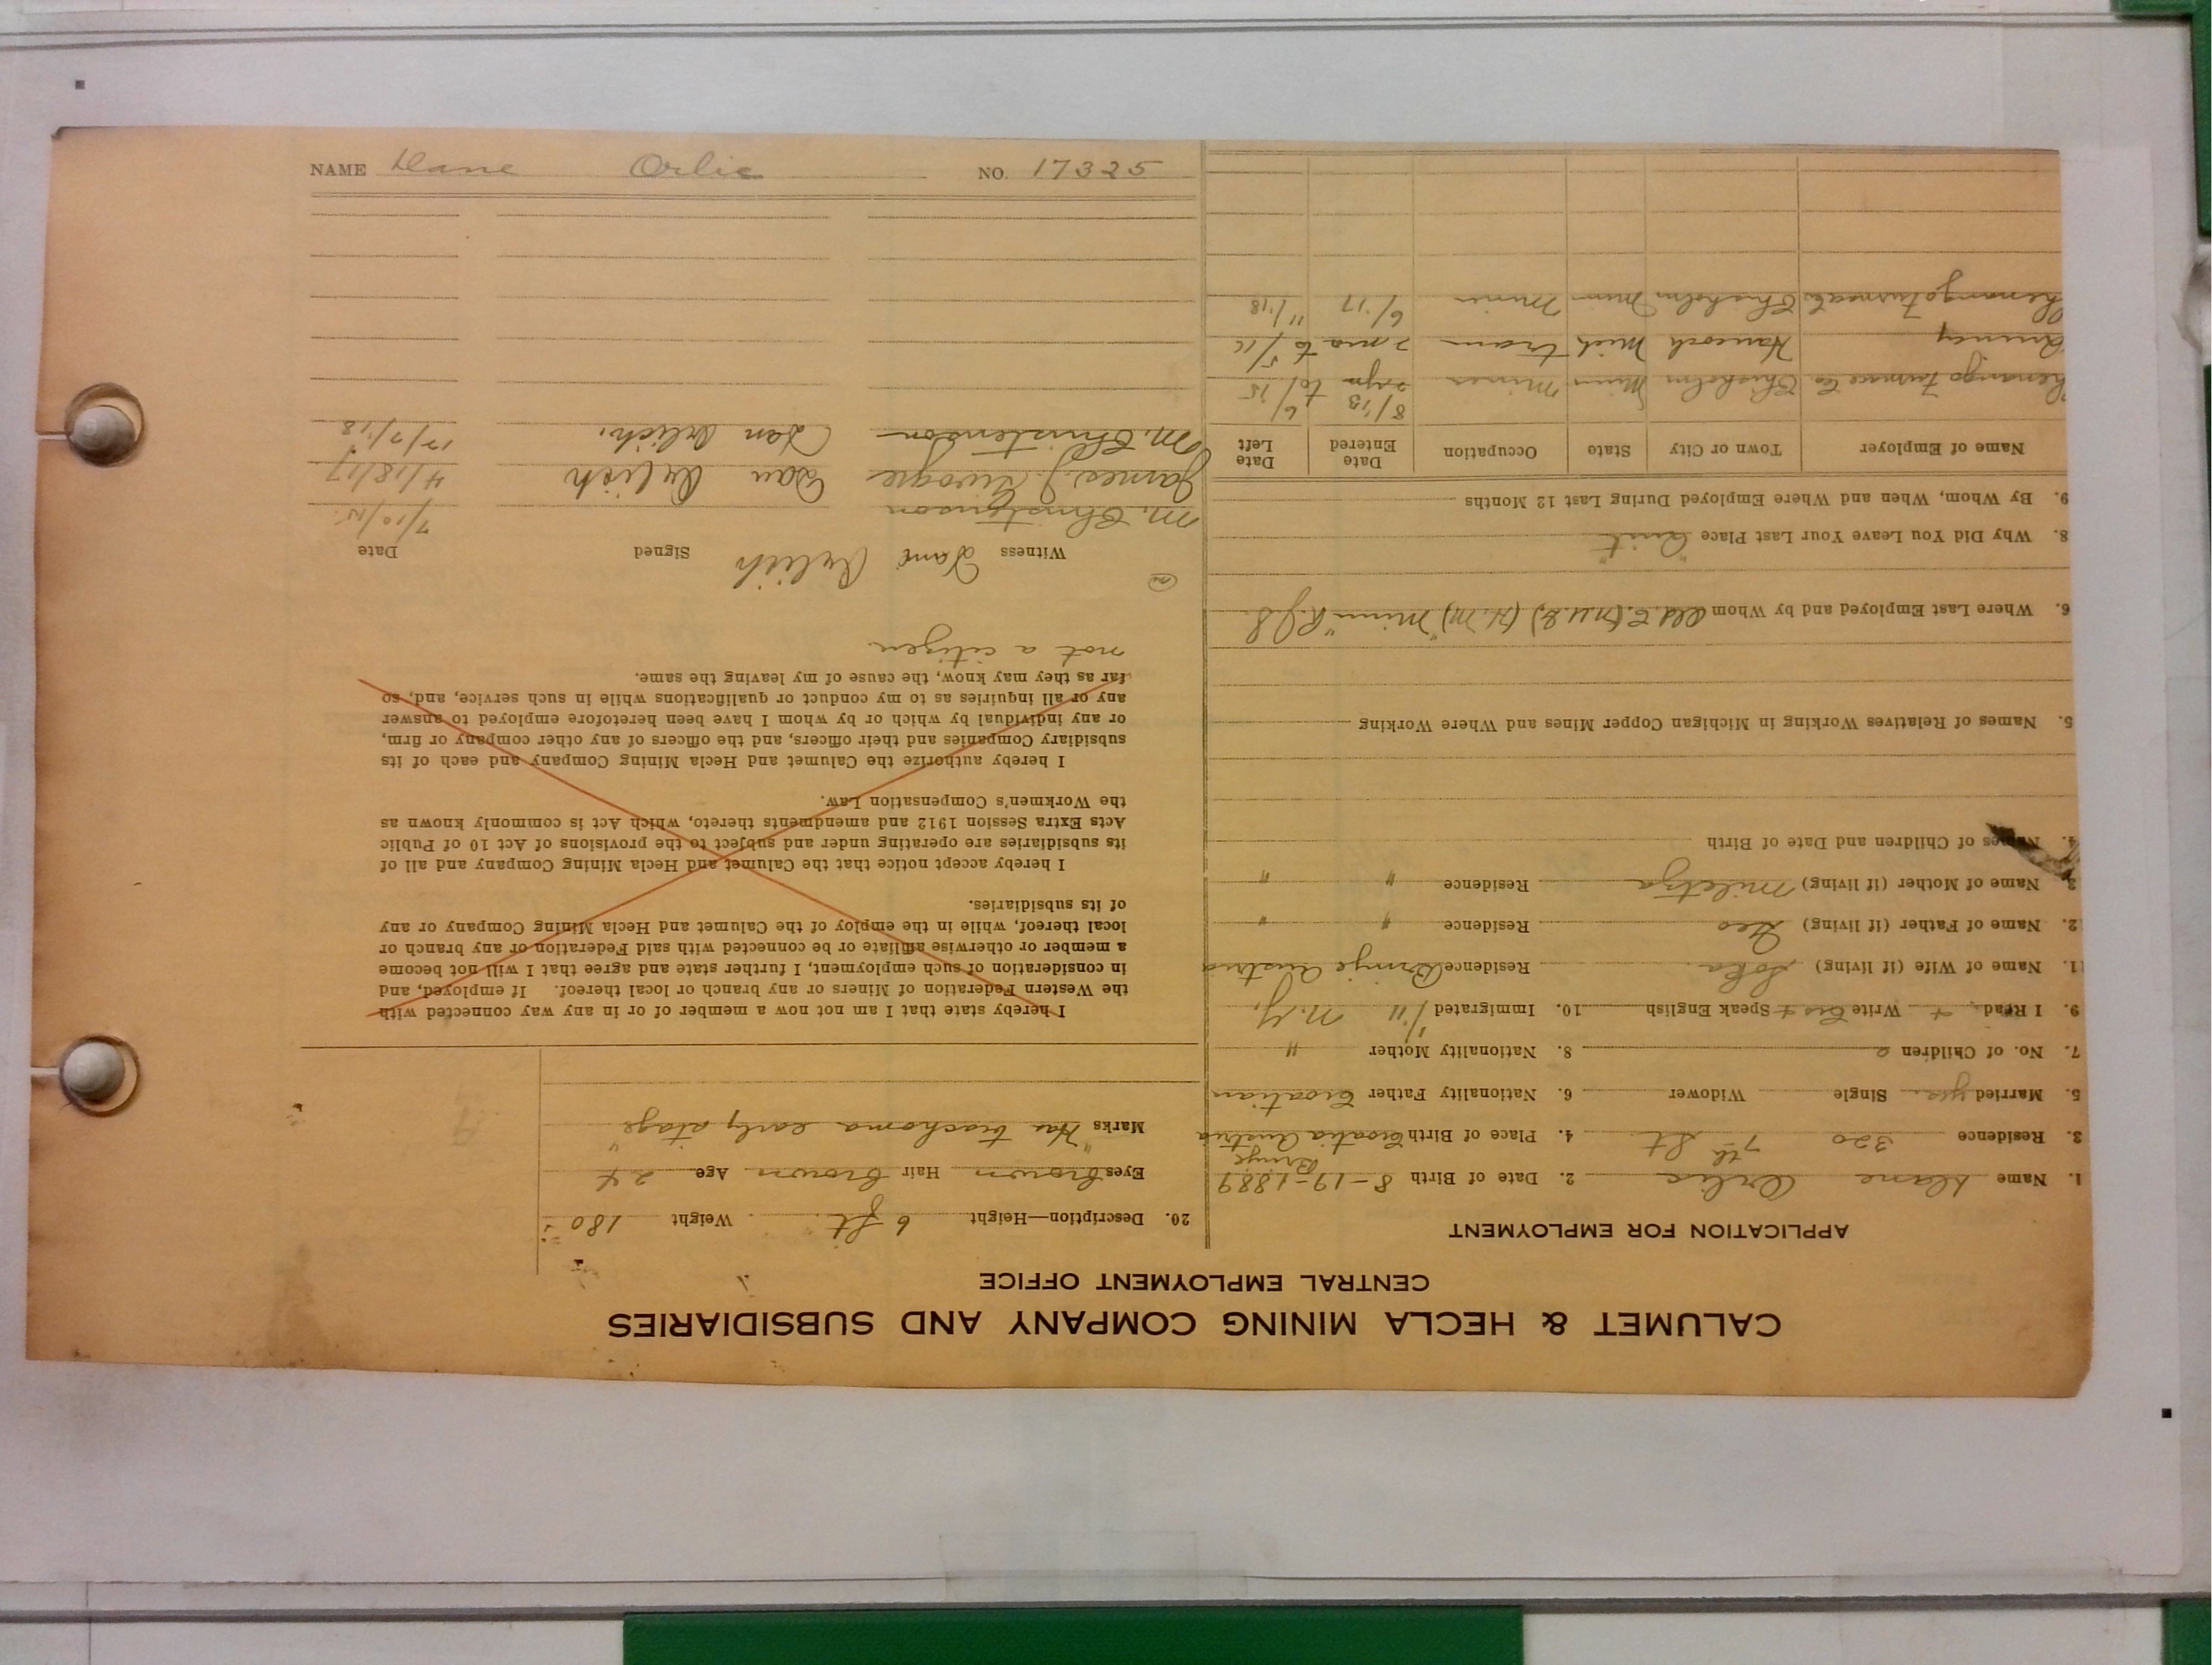 CALUMET & HECLA MINING COMPANY AND SUBSIDIARIES
CENTRAL EMPLOYMENT OFFICE
APPLICATION FOR EMPLOYMENT
1. Name Dane Orlic 2. Date of Birth 8-19-1889
3. Residence 320 7th St 4. Place of Birth Croatia Austria
5. Married yes Single Widower 6. Nationality Father Croatian
7. No. of Children 8. Nationality Mother "
9. I Read, + Write Cro + Speak English 10. Immigrated 1/11 N.Y.
11. Name of Wife (if living) Soka Residence Brinje Austria
12. Name of Father (if living) Geo Residence " "
3. Name of Mother (if living) Residence " "
4. Names of Children and Date of Birth
5. Names of Relatives Working in Michigan Copper Mines and Where Working
6. Where Last Employed and by Whom
8. Why Did You Leave Your Last Place "Quit"
9. By Whom, When and Where Employed During Last 12 Months
Name of Employer Town or City State Occupation Date Entered Date Left
Shenango Furnace Co Chisholm Minn Miner 8/13 2 yrs to 6/15
Quincy Hancock Mich tram 2 mo to 5/16
Shenango Furnace Co Chisholm Minn Miner 6/17 11/18
20. Description—Height 6 ft. Weight 180
Eyes brown Hair brown Age 24
Marks "Has trachoma early stage"
I hereby state that I am not now a member of or in any way connected with
the Western Federation of Miners or any branch or local thereof. If employed, and
in consideration of such employment, I further state and agree that I will not become
a member or otherwise affiliate or be connected with said Federation or any branch or
local thereof, while in the employ of the Calumet and Hecla Mining Company or any
of its subsidiaries.
I hereby accept notice that the Calumet and Hecla Mining Company and all of
its subsidiaries are operating under and subject to the provisions of Act 10 of Public
Acts Extra Session 1912 and amendments thereto, which Act is commonly known as
the Workmen's Compensation Law.
I hereby authorize the Calumet and Hecla Mining Company and each of its
subsidiary Companies and their officers, and the officers of any other company or firm,
or any individual by which or by whom I have been heretofore employed to answer
any or all inquiries as to my conduct or qualifications while in such service, and, so
far as they may know, the cause of my leaving the same.
not a citizen
Witness Signed Date
M. Christenson 7/10/15
James J. Dan Orlich 4/18/17
M. Christenson Dan Orlich. 12/2/18
NAME Dane Orlic NO. 17325